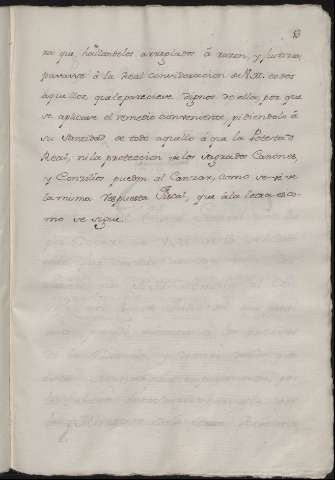 ra que, hallandolos arreglados â razon, y Justicia,
pasasse â la Real consideracion de V.M. todos
aquellos que le pareciesse dignos de ella, por que
se aplicase el remedio conveniente, pidiendolo â
su Santidad de todo aquello â que la Potestad
Real, ni la proteccion de los Sagrados Canones,
y Conzilios pueden al Canzar, como se vè de
la misma Respuesta Fiscal, que â la letra es co-
mo se sigue.